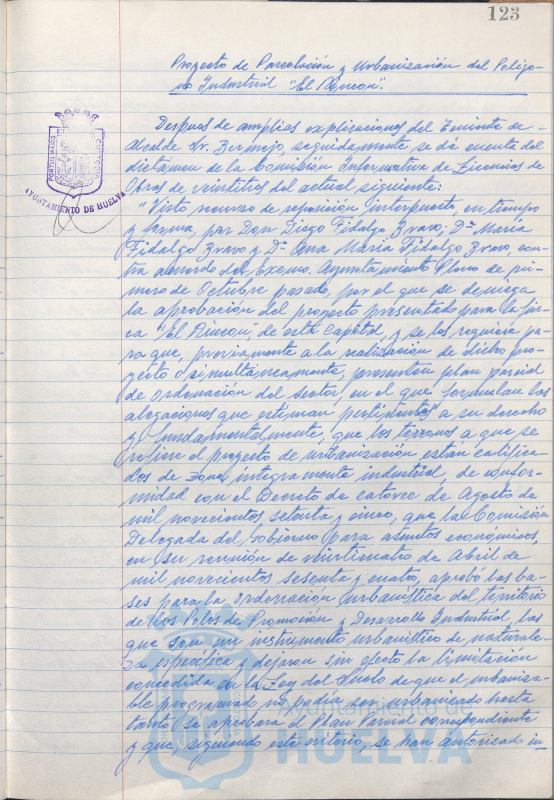 123
Proyecto de Parcelación y Urbanización del Polígo-
no Industrial "El Rincon".
Despues de amplias explicaciones del Teniente de
Alcalde Sr. Bermejo, seguidamente se dá cuenta del
dictámen de la Comisión Informativa de Licencias de
Obras de veintitres del actual, siguiente:
"Visto recurso de reposición interpuesto, en tiempo
y forma, por Don Diego Fidalgo Bravo; Dª María
Fidalgo Bravo y Dª Ana María Fidalgo Bravo, con-
tra acuerdo del Excmo. Ayuntamiento Pleno de pri-
mero de Octubre pasado, por el que se deniega
la aprobación del proyecto presentado para la fin-
ca "El Rincon" de esta Capital, y se les requiere pa-
ra que, previamente a la realización de dicho pro-
yecto o simultáneamente, presenten plan parcial
de ordenación del sector, en el que formulan las
alegaciones que estiman pertinentes a su derecho
y fundamentalmente, que los terrenos a que se
refiere el proyecto de urbanización están califica-
dos de zona íntegramente industrial, de confor-
midad con el Decreto de catorce de Agosto de
mil novecientos setenta y cinco, que la Comisión
Delegada del Gobierno para asuntos económicos,
en su reunión de veinticuatro de Abril de
mil novecientos sesenta y cuatro, aprobó las ba-
ses para la ordenación urbanística del territorio
de los Polos de Promoción y Desarrollo Industrial, las
que son un instrumento urbanístico de naturale-
za específica y dejaron sin efecto la limitación
concedida en la Ley del Suelo de que el urbaniza-
ble programado no podía ser urbanizado hasta
tanto se aprobara el Plan Parcial correspondiente
y que, siguiendo este criterio, se han autorizado in-
PORTUS MARIS
CUSTODIA
AYUNTAMIENTO DE HUELVA
Ayuntamiento de
HUELVA